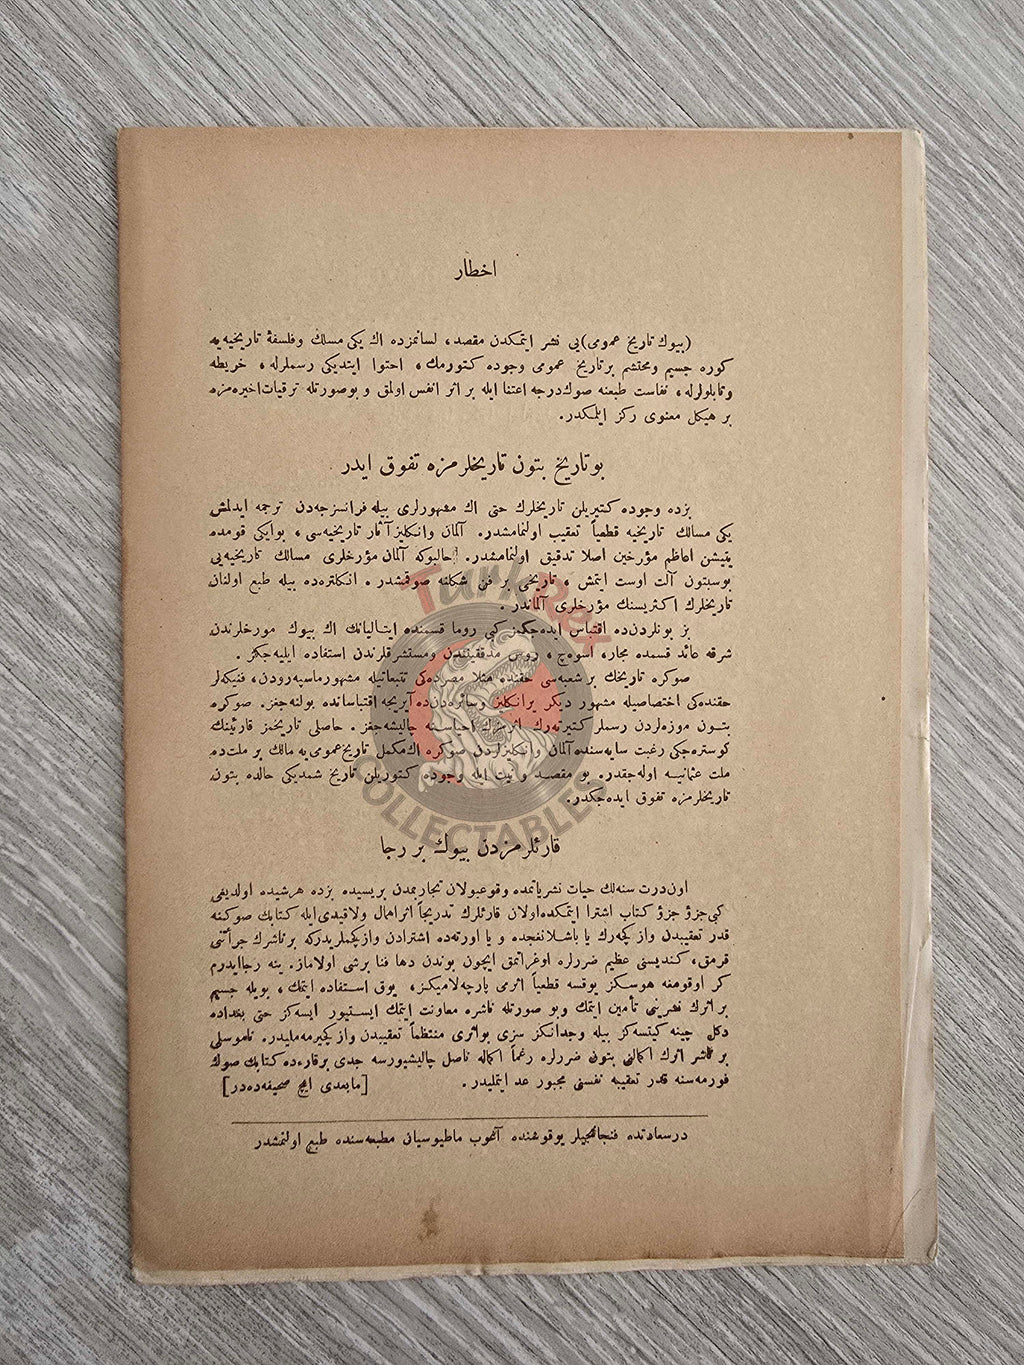 اخطار
(بیوك تاریخ عمومی)یی نشر ایتمكدن مقصد، لسانمزده اك یكی مسلك وفلسفۀ تاریخیه‌یه
كوره جسیم ومحتشم برتاریخ عمومی وجوده كتورمك، احتوا ایتدیكی رسملرله، خریطه
وتابلولرله، نفاست طبعنه صوك‌درجه اعتنا ایله بر اثر انفس اولمق و بوصورتله ترقیات‌اخیره‌مزه
بر هیكل معنوی ركز ایلمكدر.
بوتاریخ بتون تاریخلرمزه تفوق ایدر
بزده وجوده كتیریلن تاریخلرك حتی اك مشهورلری بیله فرانسزجه‌دن ترجمه ایدلمش
یكی مسالك تاریخیه قطعیاً تعقیب اولنمامشدر. آلمان وانكلیز آثار تاریخیه‌سی، بوایكی قومده
یتیشن اعاظم مؤرخین اصلا تدقیق اولنمامشدر. حالبوكه آلمان مؤرخلری مسالك تاریخیه‌یی
بوسبتون آلت اوست ایتمش، تاریخی بر فن شكلنه صوقمشدر. انكلتره‌ده بیله طبع اولنان
تاریخلرك اكثریسنك مؤرخلری آلماندر.
بز بونلردن‌ده اقتباس ایده‌جكیز كبی روما قسمنده ایتالیانك اك بیوك مورخلرندن
شرقه عائد قسمده مجار، اسوج، روس مدققیندن ومستشرقلرندن استفاده ایلیه‌جكز.
صوكره تاریخك بر شعبه‌سی حقنده مثلا مصرده‌كی تتبعاتیله مشهورماسپه‌رودن، فنیكه‌لر
حقنده‌كی اختصاصیله مشهور دیكر برانكلیز وسائره‌دن‌ده آیریجه اقتباسانده بولنه‌جغز. صوكره
بتون موزه‌لردن رسملر كتیرته‌رك اثرمزك احیاسنه چالیشه‌جغز. حاصلی تاریخمز قارئینك
كوستره‌جكی رغبت سایه‌سنده آلمان وانكلیزلردن صوكره اك‌مكمل تاریخ‌عمومی‌یه مالك بر ملت‌ده
ملت عثمانیه اوله‌جقدر. بو مقصد و نیت ایله وجوده كتوریلن تاریخ شمدیكی حالده بتون
تاریخلرمزه تفوق ایده‌جكدر.
قارئلرمزدن بیوك بر رجا
اون‌درت سنه‌لك حیات نشریاتمده وقوعبولان تجاربمدن بریسیده بزده هرشیده اولدیغی
كبی‌جزؤ جزؤ كتاب اشترا ایتمكده‌اولان قارئلرك تدریجاً اثراهمال ولاقیدی‌ایله كتابك صوكنه
قدر تعقیبدن واز كچه‌رك یا باشلانغجده و یا اورته‌ده اشترادن وازكچملریدركه بر ناشرك جرأتنی
قرمق، كندیسنی عظیم ضررلره اوغراتمق ایچون بوندن دها فنا برشی اولاماز. ینه رجاایدرم
كر اوقومغه هوسكز یوقسه قطعیاً اثرمی پارچه‌لامیكز، یوق استفاده ایتمك، بویله جسیم
بر اثرك نشرینی تأمین ایتمك وبو صورتله ناشره معاونت ایتمك ایستیور ایسه‌كز حتی بغداده
دكل چینه كیتسه‌كز بیله وجدانكز سزی بواثری منتظماً تعقیبدن واز كچیرمه‌ملیدر. ناموسلی
بر ناشر اثرك اكمالنی بتون ضررلره رغماً اكماله ناصل چالیشیورسه جدی برقارءده كتابك صوك
فورمه‌سنه قدر تعقیبه نفسنی مجبور عد ایتملیدر. [مابعدی ایچ صحیفه‌ده‌در]
درسعادتده فنجانجیلر یوقوشنده آغوب ماطیوسیان مطبعه‌سنده طبع اولنمشدر
Turk Rex
COLLECTABLES